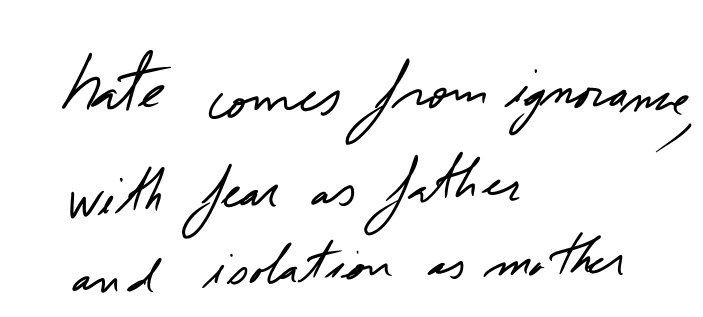 hate comes from ignorance,
with fear as father
and isolation as mother